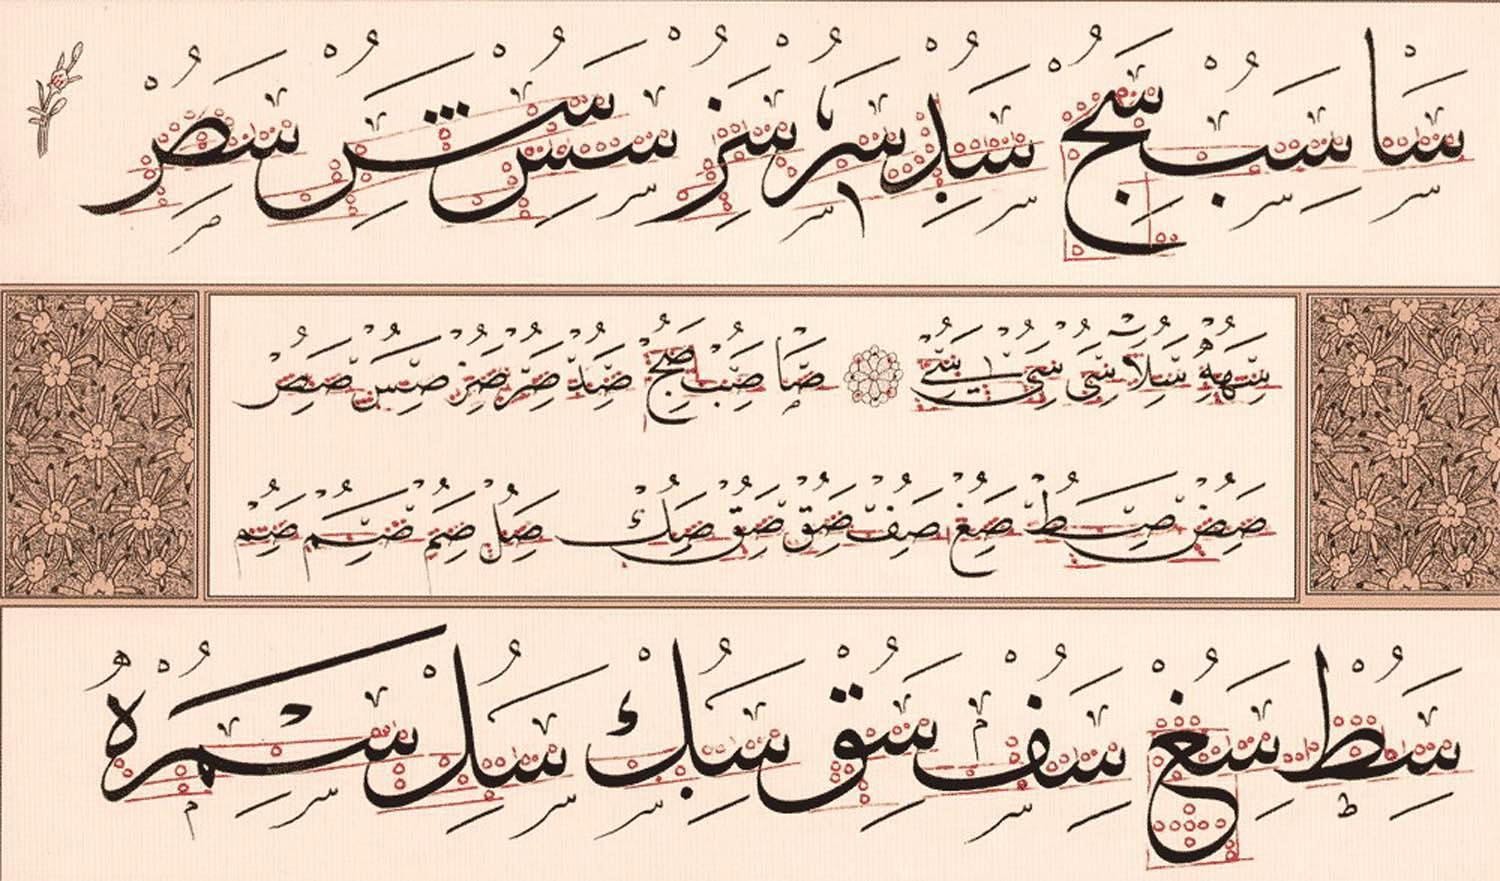 سا سب سج سد سر سز سس سش سص
سهه سلا سى سى صا صب صج صد صر صز صس صص
صض صط صغ صف صق صق صك صل صم صم صم
سط سغ سف سق سك سل سمره